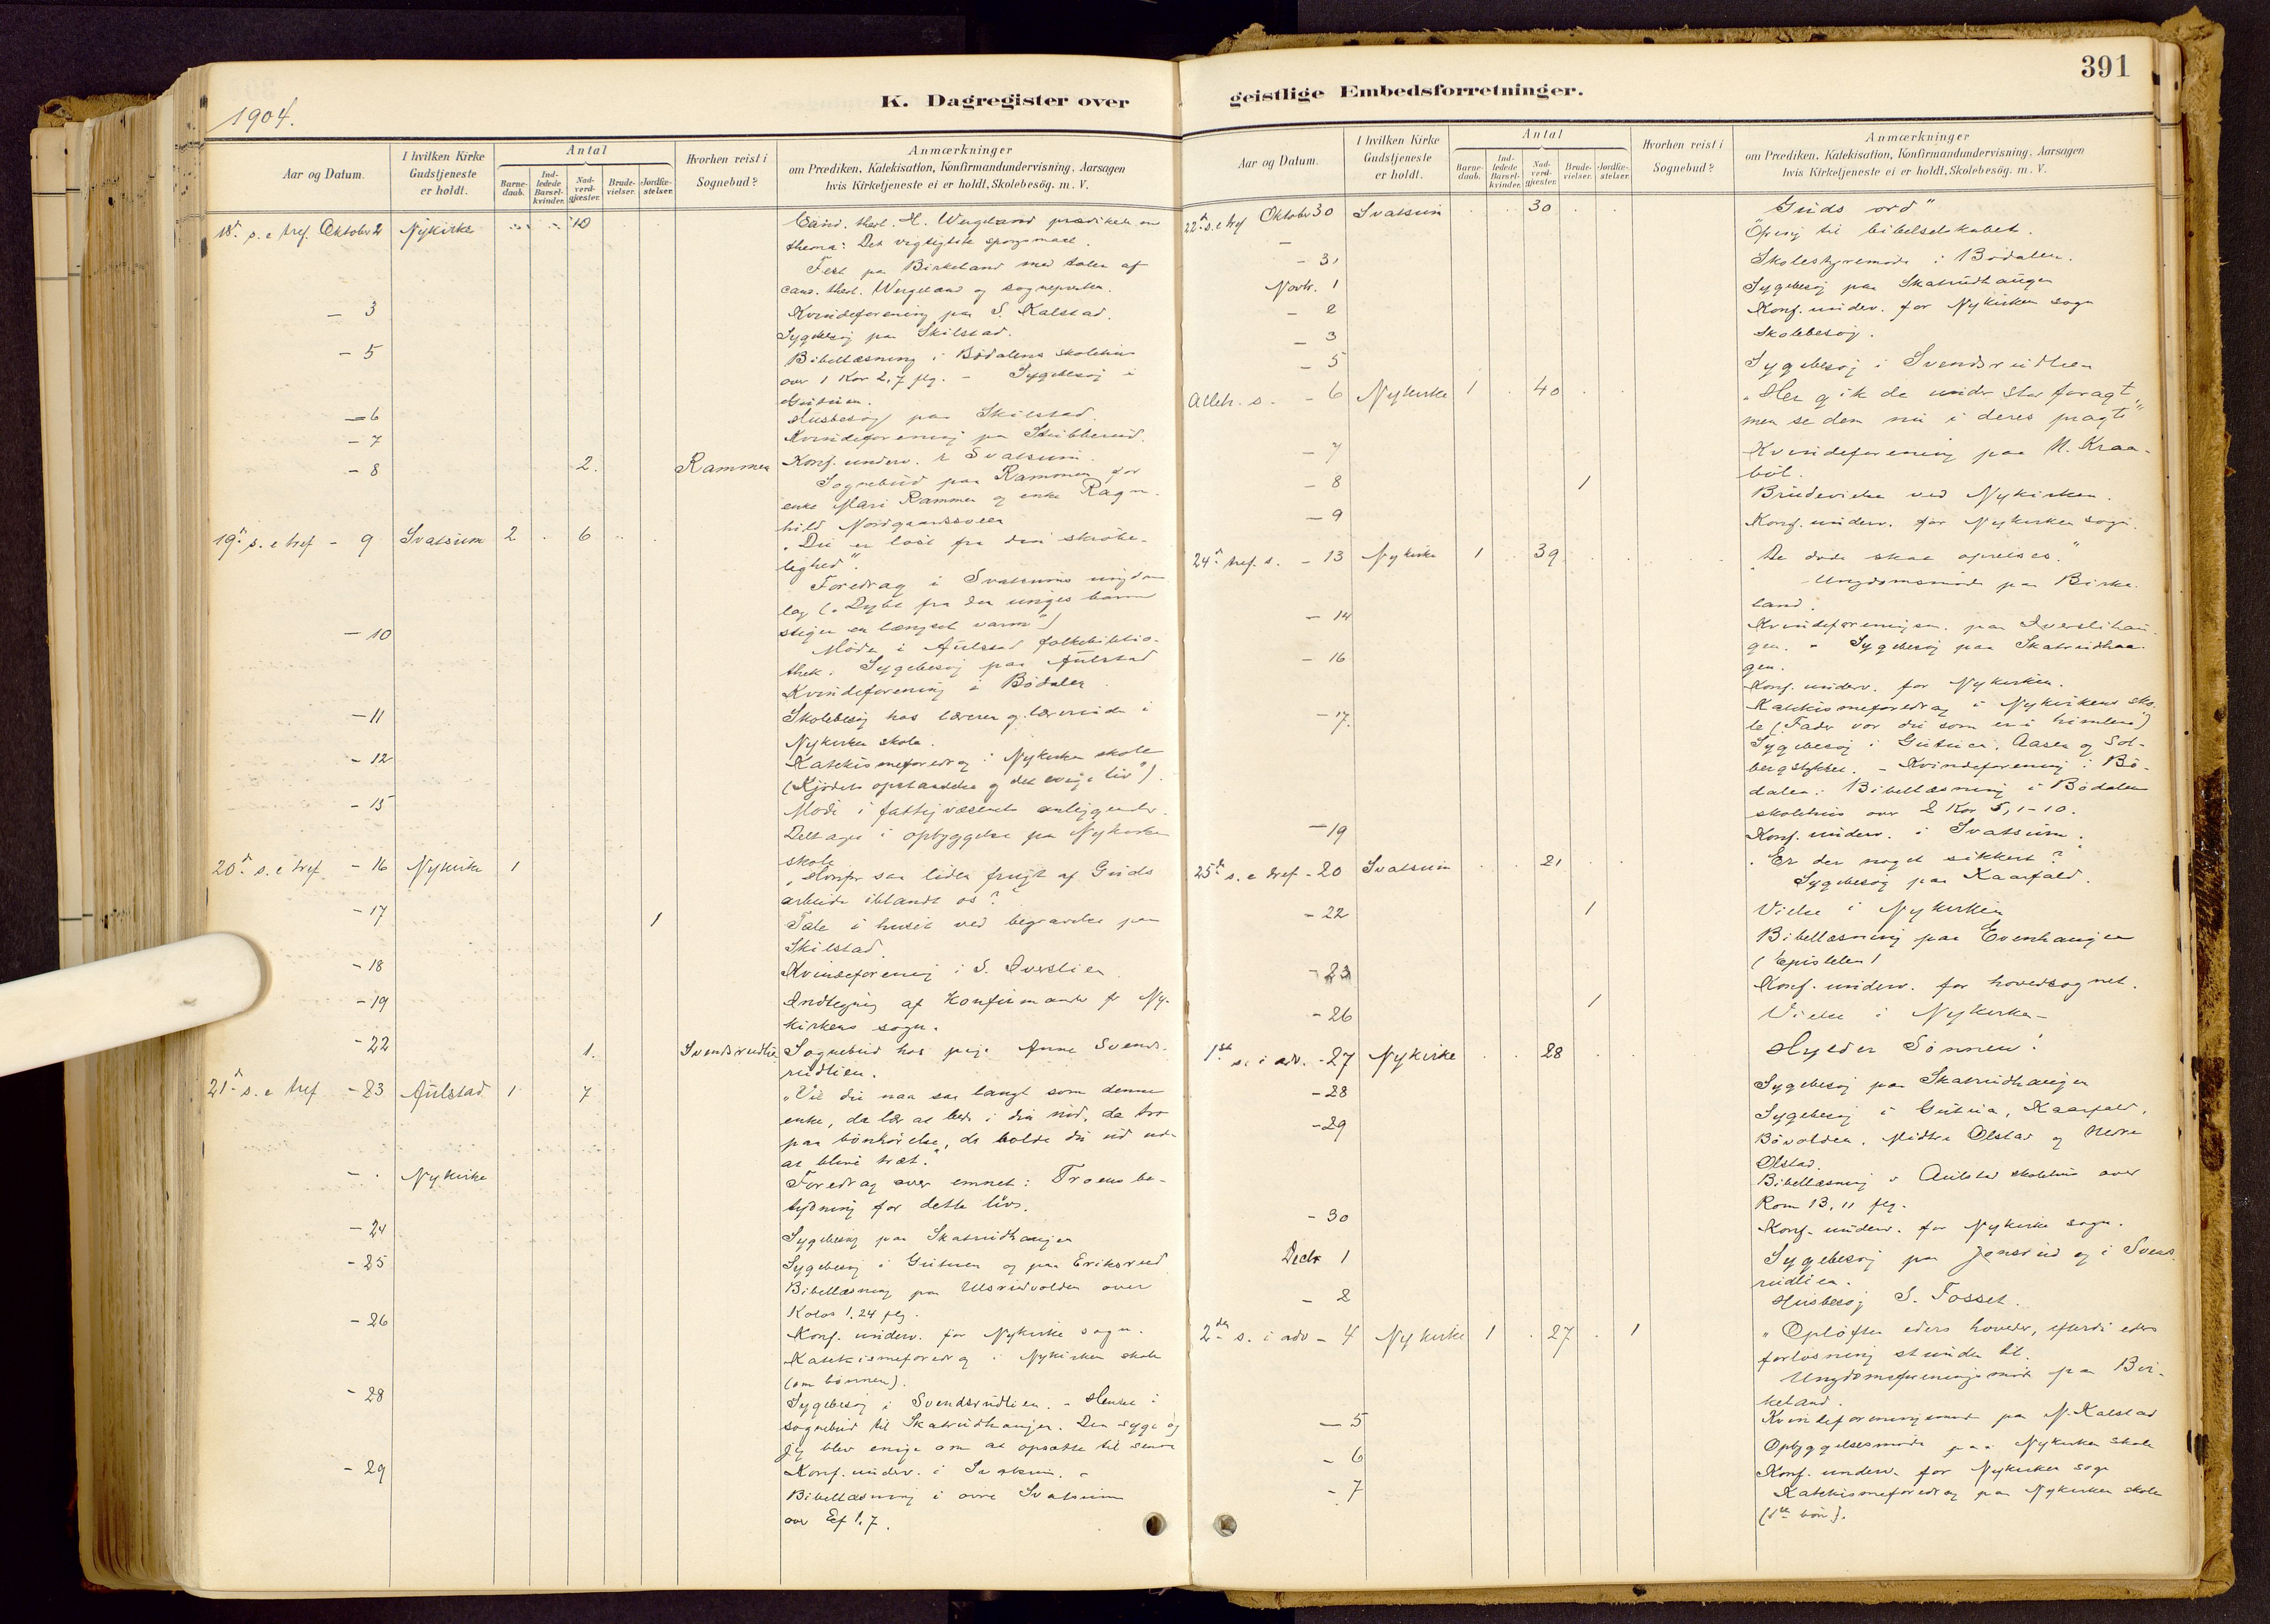 1904.
K. Dagregister over
Aar og Datum.
I hvilken Kirke Gudstjeneste er holdt.
Antal
Barne-daab.
Ind-ledede Barsel-kvinder.
Nad-verd-gjæster.
Brude-vielser.
Jordfæ-stelser.
Hvorhen reist i Sognebud?
Anmærkninger
om Prædiken, Katekisation, Konfirmandundervisning, Aarsagen
hvis Kirketjeneste ei er holdt, Skolebesøg. m. V.
18de s. e. tref. Oktober 2 Nykirke 10 Cand. theol. H. Wergeland prædiket om
thema: Det vigtigste spørgsmaal.
Fest paa Birkeland med taler af
cand. theol. Wergeland og sognepresten.
– 3 Kvindeforening paa S. Kalstad.
Sygebesøg paa Skilstad.
– 5 Bibellæsning i Bødalens skolehus
over 1 Kor 2,7 flg. – Sygebesøg i
– 6 Husbesøg paa Skilstad.
– 7 Kvindeforening paa
– 8 2. Rammen Konf. underv. i Svatsum.
Sognebud paa Rammen for
enke Mari Rammen og enke Ragn-
hild
19de s. e tref – 9 Svatsum 2 6 „Du er løst fra din skrøbe-
lighed".
Foredrag i Svatsums ungdoms
lag („Dybt fra de unges barm
stiger en længsel varm")
– 10 Møde i Aulstad folkebiblio-
thek. Sygebesøg paa Aulstad
Kvindeforening i Bødalen
– 11 Skolebesøg hos lærer og lærerinde i
Nykirken skole.
– 12 Katekismeforedrag i Nykirken skole
(Kjødets opstandelse og det evige liv").
– 15 Møde i fattigvæsenets anliggender.
Deltager i opbyggelse paa Nykirken
skole
20de s. e tref – 16 Nykirke 1 „Hvorfor saa liden frugt af Guds
arbeide iblandt os?"
– 17 1 Tale i huset ved begravelse paa
Skilstad.
– 18 Kvindeforening i S. Iverslien
– 19 Indtegning af Konfirmander fr Ny-
kirkens sogn.
– 22 1. Svendsrudlien Sognebud hos pige Anne Svends-
rudlien.
21de s. e tref – 23 Aulstad 1 7 „Vil du naa saa langt som denne
enke, da lær at bede i din nød, da tro
paa bønhørelse, da holde du ud uden
at blive træt."
– Nykirke Foredrag over emnet: Troens be-
tydning for dette liv.
– 24 Sygebesøg paa Skatrudhaugen
– 25 Sygebesøg i Gutuen og paa Eriksrud
Bibellæsning paa Ulsrudvolden over
Kolos 1,24 flg.
– 26 Konf. underv. for Nykirke sogn.
Katekismeforedrag i Nykirken skole
(om bønnen).
– 28 Sygebesøg i Svendsrudlien. – Hentet i
sognebud til Skatrudhaugen. Den syge og
jeg blev enige om at opsætte til senere
– 29 Konf. underv. i Svatsum. –
Bibellæsning i øvre Svatsum
over Ef 1,7.
391
geistlige Embedsforretninger.
Aar og Datum.
I hvilken Kirke Gudstjeneste er holdt.
Antal
Barne-daab.
Ind-ledede Barsel-kvinder.
Nad-verd-gjæster.
Brude-vielser.
Jordfæ-stelser.
Hvorhen reist i Sognebud?
Anmærkninger
om Prædiken, Katekisation, Konfirmandundervisning, Aarsagen
hvis Kirketjeneste ei er holdt, Skolebesøg. m. V.
22de s. e tref Oktober 30 Svatsum 30 „Guds ord"
– Ofring til bibelselskabet.
– 31 Skolestyremøde i Bødalen.
Novbr. 1 Sygebesøg paa Skatrudhaugen
– 2 Konf. underv. for Nykirken sogn
– 3 Skolebesøg.
– 5 Sygebesøg i Svendsrudlien
Alleh. s. – 6 Nykirke 1 40 „Her gik de under stor foragt,
men se dem nu i deres pragt"
– 7 Kvindeforening paa N. Kraa-
bøl.
– 8 1 Brudevielse ved Nykirken.
– 9 Konf. underv. for Nykirken sogn.
24de tref. s. – 13 Nykirke 1 39 „De døde skal opreises."
Ungdomsmøde paa Birke-
land.
– 14 Kvindeforeningen paa Iverslihau-
gen. – Sygebesøg paa Skatrudhau-
gen.
– 16 Konf. underv. for Nykirken.
Katekismeforedrag i Nykirkens sko-
le („Fader vor du som er i himlene")
– 17. Sygebesøg i Gutuen, Aasen og Sol-
bergstykket. – Kvindeforening i Bø-
dalen. Bibellæsning i Bødalen
skolehus over 2 Kor 5,1–10.
– 19 Konf. underv. i Svatsum.
25de s. e tref – 20 Svatsum 21 „Er der noget sikkert?"
Sygebesøg paa Kaarfald.
– 22 1 Vielse i Nykirken
Bibellæsning paa Evenhaugen
(Epistelen)
– 23 Konf. underv. for hovedsognet.
– 26 1 Vielse i Nykirke –
1ste s. i adv. – 27 Nykirke 28 Hylder Sønnen!
– 28 Sygebesøg paa Skatrudhaugen
– 29 Sygebesøg i Gutuen, Kaarfald,
Bøvolden, Midtre Olstad og Nedre
Olstad.
Bibellæsning i Aulstad skolehus over
Rom 13,11 flg.
– 30 Konf. underv. for Nykirke sogn.
Decbr 1 Sygebesøg paa Jonsrud og i Svens-
rudlien.
– 2 Husbesøg S. Fosset.
2den s. i adv – 4 Nykirke 1 27 1 „Opløfter eders hoveder, efterdi eders
forløsning stunder til.
Ungdomsforeningsmøde paa Bir-
keland.
– 5 Kvindeforeningsmøde paa N. Kalstad
– 6 Opbyggelsesmøde paa Nykirken skole
– 7 Konf. underv. for Nykirken sogn
Katekismeforedrag paa Nykirken skole
(1ste bøn).